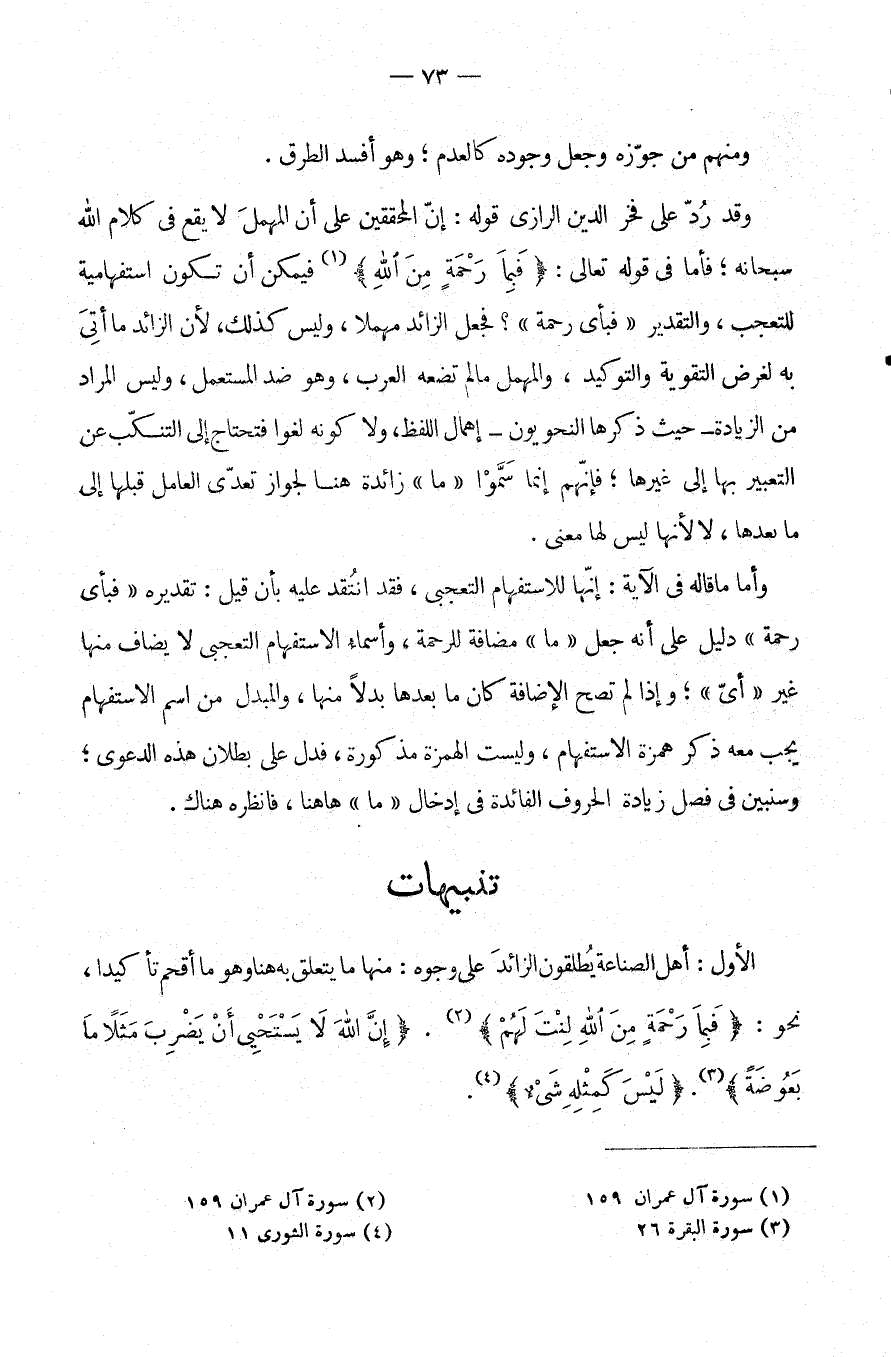 — ٧٣ —
ومنهم من جوّزه وجعل وجوده كالعدم ؛ وهو أفسد الطرق .
وقد رُدّ على فخر الدين الرازى قوله : إنّ المحققين على أن المهملَ لا يقع فى كلام الله
سبحانه ؛ فأما فى قوله تعالى : ﴿ فَبِمَا رَحْمَةٍ مِنَ ٱللهِ ﴾ (١) فيمكن أن تـكون استفهامية
للتعجب ، والتقدير « فبأى رحمة » ؟ فجعل الزائد مهملا ، وليس كذلك، لأن الزائد ما أتِىَ
به لغرض التقوية والتوكيد ، والمهمل مالم تضعه العرب ، وهو ضد المستعمل ، وليس المراد
من الزيادة ـ حيث ذكرها النحويون ـ إهمال اللفظ، ولا كونه لغوا فتحتاج إلى التنـكّب عن
التعبير بها إلى غيرها ؛ فإنّهم إنما سَمَّوْا « ما » زائدة هنـا لجواز تعدّى العامل قبلها إلى
ما بعدها ، لا لأنها ليس لها معنى .
وأما ماقاله فى الآية : إنّها للاستفهام التعجبى ، فقد انتُقد عليه بأن قيل : تقديره « فبأى
رحمة » دليل على أنه جعل « ما » مضافة للرحمة ، وأسماء الاستفهام التعجبى لا يضاف منها
غير « أىّ » ؛ وإذا لم تصح الإضافة كان ما بعدها بدلاً منها ، والمبدل من اسم الاستفهام
يجب معه ذكر همزة الاستفهام ، وليست الهمزة مذكورة ، فدل على بطلان هذه الدعوى ؛
وسنبين فى فصل زيادة الحروف الفائدة فى إدخال « ما » هاهنا ، فانظره هناك .
تنبيهات
الأول : أهل الصناعة يُطلقون الزائدَ على وجوه : منها ما يتعلق به هنا وهو ما أقحم تأكيدا ،
نحو : ﴿ فَبِمَا رَحْمَةٍ مِنَ ٱللهِ لِنْتَ لَهُمْ ﴾ (٢) . ﴿ إِنَّ اللهَ لَا يَسْتَحْيِي أَنْ يَضْرِبَ مَثَلًا مَا
بَعُوضَةً ﴾ (٣). ﴿ لَيْسَ كَمِثْلِهِ شَىْءٌ ﴾ (٤).
(١) سورة آل عمران ١٥٩
(٢) سورة آل عمران ١٥٩
(٣) سورة البقرة ٢٦
(٤) سورة الشورى ١١